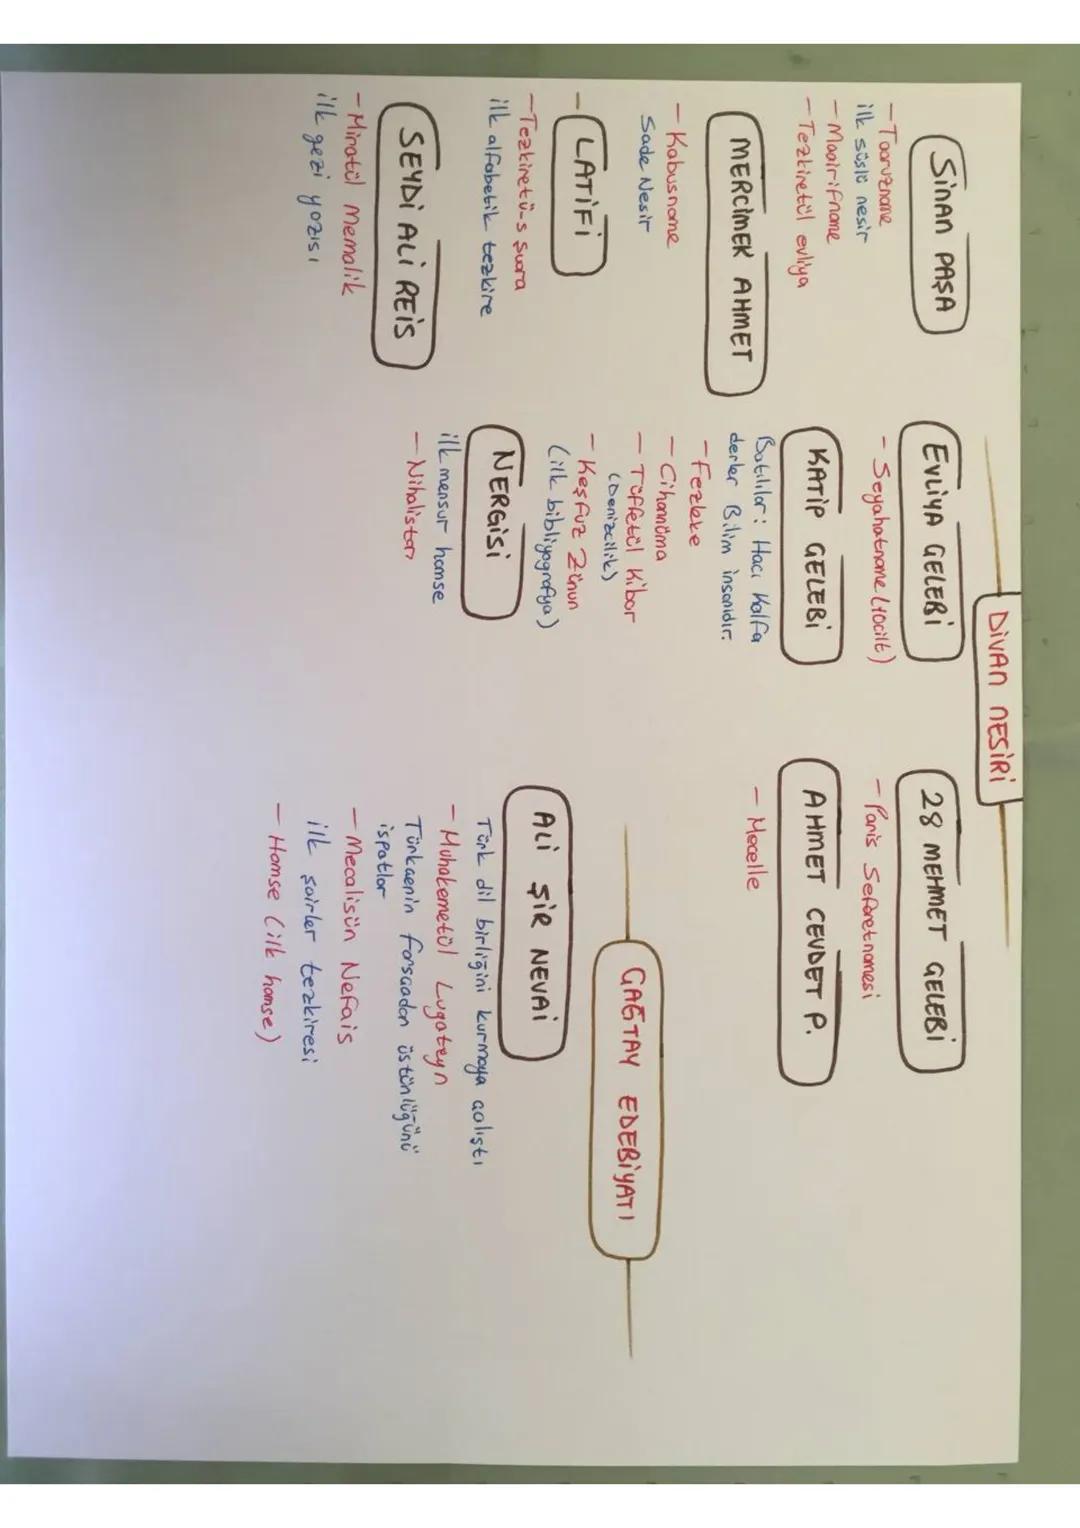 DİVAN NESİRİ
SİNAN PAŞA
- Tazruzname
ilk süslü nesir
- Maairifname
- Tezkiretül evliya
MERCİMEK AHMET
- Kabusname
Sade Nesir
- LATİFİ
- Tezkiretü-s Şuara
ilk alfabetik tezkire
SEYDİ ALİ REİS
- Miratül Memalik
ilk gezi yazısı
EVLİYA ÇELEBİ
- Seyahatname (10cilt)
KATİP ÇELEBİ
Batılılar: Hacı Kalfa
derler Bilim insanıdır.
- Fezleke
- Cihannüma
- Tüffetül Kibar
(Denizcilik)
- Keşfüz Zünun
(ilk bibliyografya)
NERGİSİ
ilk mensur hamse
- Nihalistan
28 MEHMET ÇELEBİ
- Paris Sefaretnamesi
AHMET CEVDET P.
- Mecelle
ÇAĞTAY EDEBİYATI
ALİ ŞİR NEVAİ
Türk dil birliğini kurmaya çalıştı
- Muhakemetül Lugateyn
Türkçenin farsçadan üstünlüğünü
ispatlar
- Mecalisün Nefais
ilk şairler tezkiresi
- Hamse (ilk hamse)